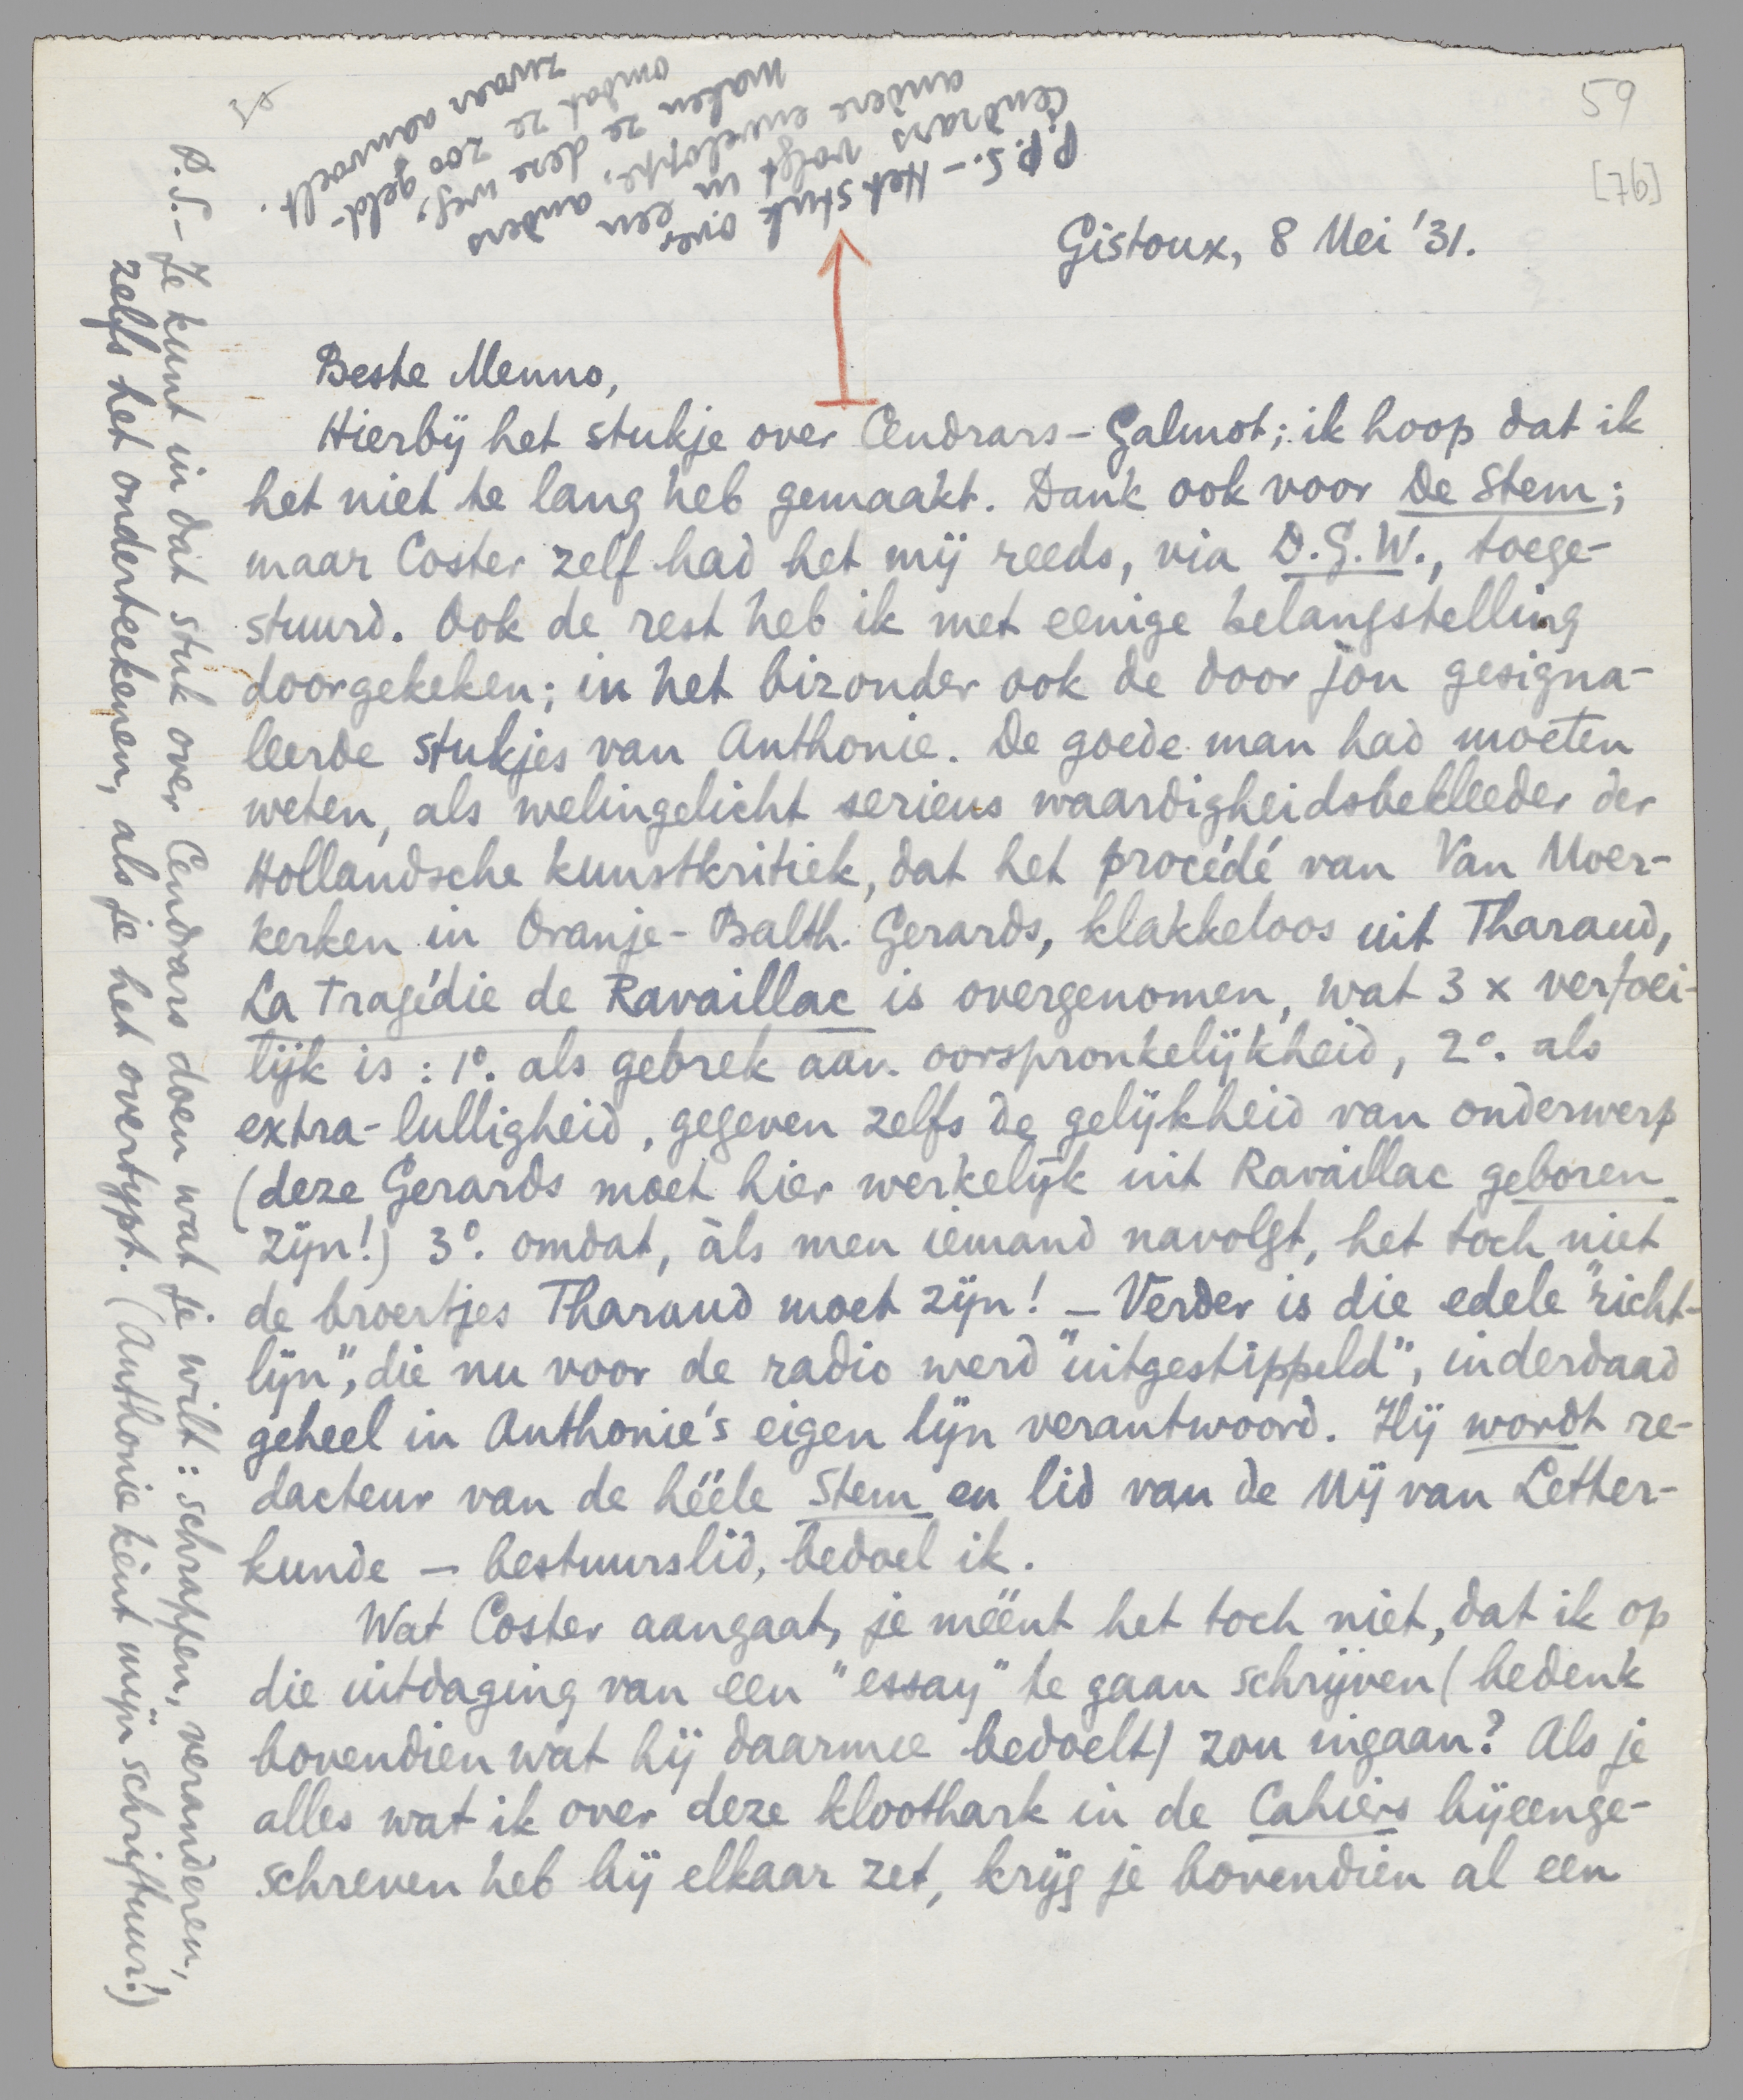 59
[76]
Gistoux, 8 Mei '31.
Beste Menno,
Hierbij het stukje over Cendrars-Galmot; ik hoop dat ik
het niet te lang heb gemaakt. Dank ook voor De Stem;
maar Coster zelf had het mij reeds, via D.G.W., toege-
stuurd. Ook de rest heb ik met eenige belangstelling
doorgekeken; in het bizonder ook de door jou gesigna-
leerde stukjes van Anthonie. De goede man had moeten
weten, als welingelicht serieus waardigheidsbekleeder der
Hollandsche kunstkritiek, dat het procédé van Van Moer-
kerken in Oranje-Balth. Gerards, klakkeloos uit Tharaud,
La Tragédie de Ravaillac is overgenomen, wat 3 x verfoei-
lijk is: 1º. als gebrek aan oorspronkelijkheid, 2º. als
extra-lulligheid, gegeven zelfs de gelijkheid van onderwerp
(deze Gerards moet hier werkelijk uit Ravaillac geboren
zijn!) 3º. omdat, àls men iemand navolgt, het toch niet
de broertjes Tharaud moet zijn! — Verder is die edele "richt-
lijn", die nu voor de radio werd "uitgestippeld", inderdaad
geheel in Anthonie's eigen lijn verantwoord. Hij wordt re-
dacteur van de hééle Stem en lid van de Mij van Letter-
kunde — bestuurslid, bedoel ik.
Wat Coster aangaat, je méént het toch niet, dat ik op
die uitdaging van een "essay" te gaan schrijven (bedenk
bovendien wat hij daarmee bedoelt) zou ingaan? Als je
alles wat ik over deze kloothark in de Cahiers bijeenge-
schreven heb bij elkaar zet, krijg je bovendien al een
P.S.— Je kunt in dat stuk over Cendrars doen wat je wilt: schrappen, veranderen,
zelfs het onderteekenen, als je het overtypt. (Anthonie kent mijn schriftuur!)
P.P.S.— Het stuk over
Cendrars volgt in een
andere enveloppe, anders
maken ze deze weg,
omdat ze zoo geld-
zwaar aanvoelt.